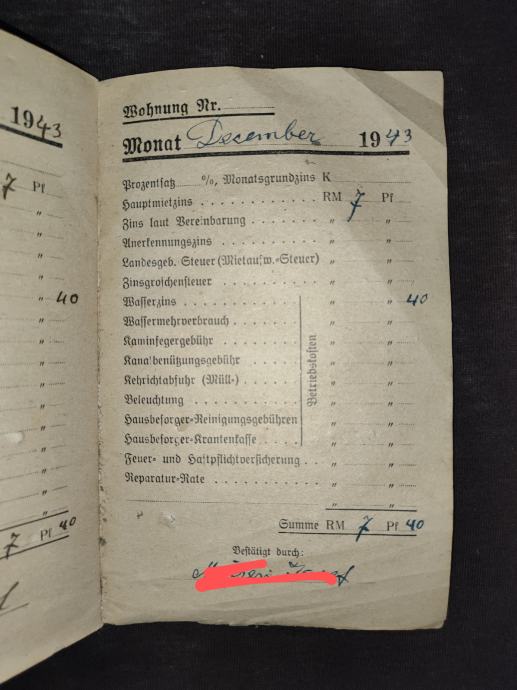 1943
7 Pf
"
"
"
"
"
" 40
"
"
"
"
"
"
"
"
"
"
7 Pf 40
Wohnung Nr.
Monat December 1943
Prozentsatz %, Monatsgrundzins K
Hauptmietzins RM 7 Pf
Zins laut Vereinbarung " "
Anerkennungszins " "
Landesgeb. Steuer (Mietaufw.-Steuer) " "
Zinsgroschensteuer " "
Wasserzins " " 40
Wassermehrverbrauch " "
Kaminfegergebühr " "
Kanalbenützungsgebühr " "
Kehrichtabfuhr (Müll-) " "
Beleuchtung " "
Hausbesorger-Reinigungsgebühren " "
Hausbesorger-Krankenkasse " "
Betriebskosten
Feuer- und Haftpflichtversicherung " "
Reparatur-Rate " "
" "
Summe RM 7 Pf 40
Bestätigt durch: